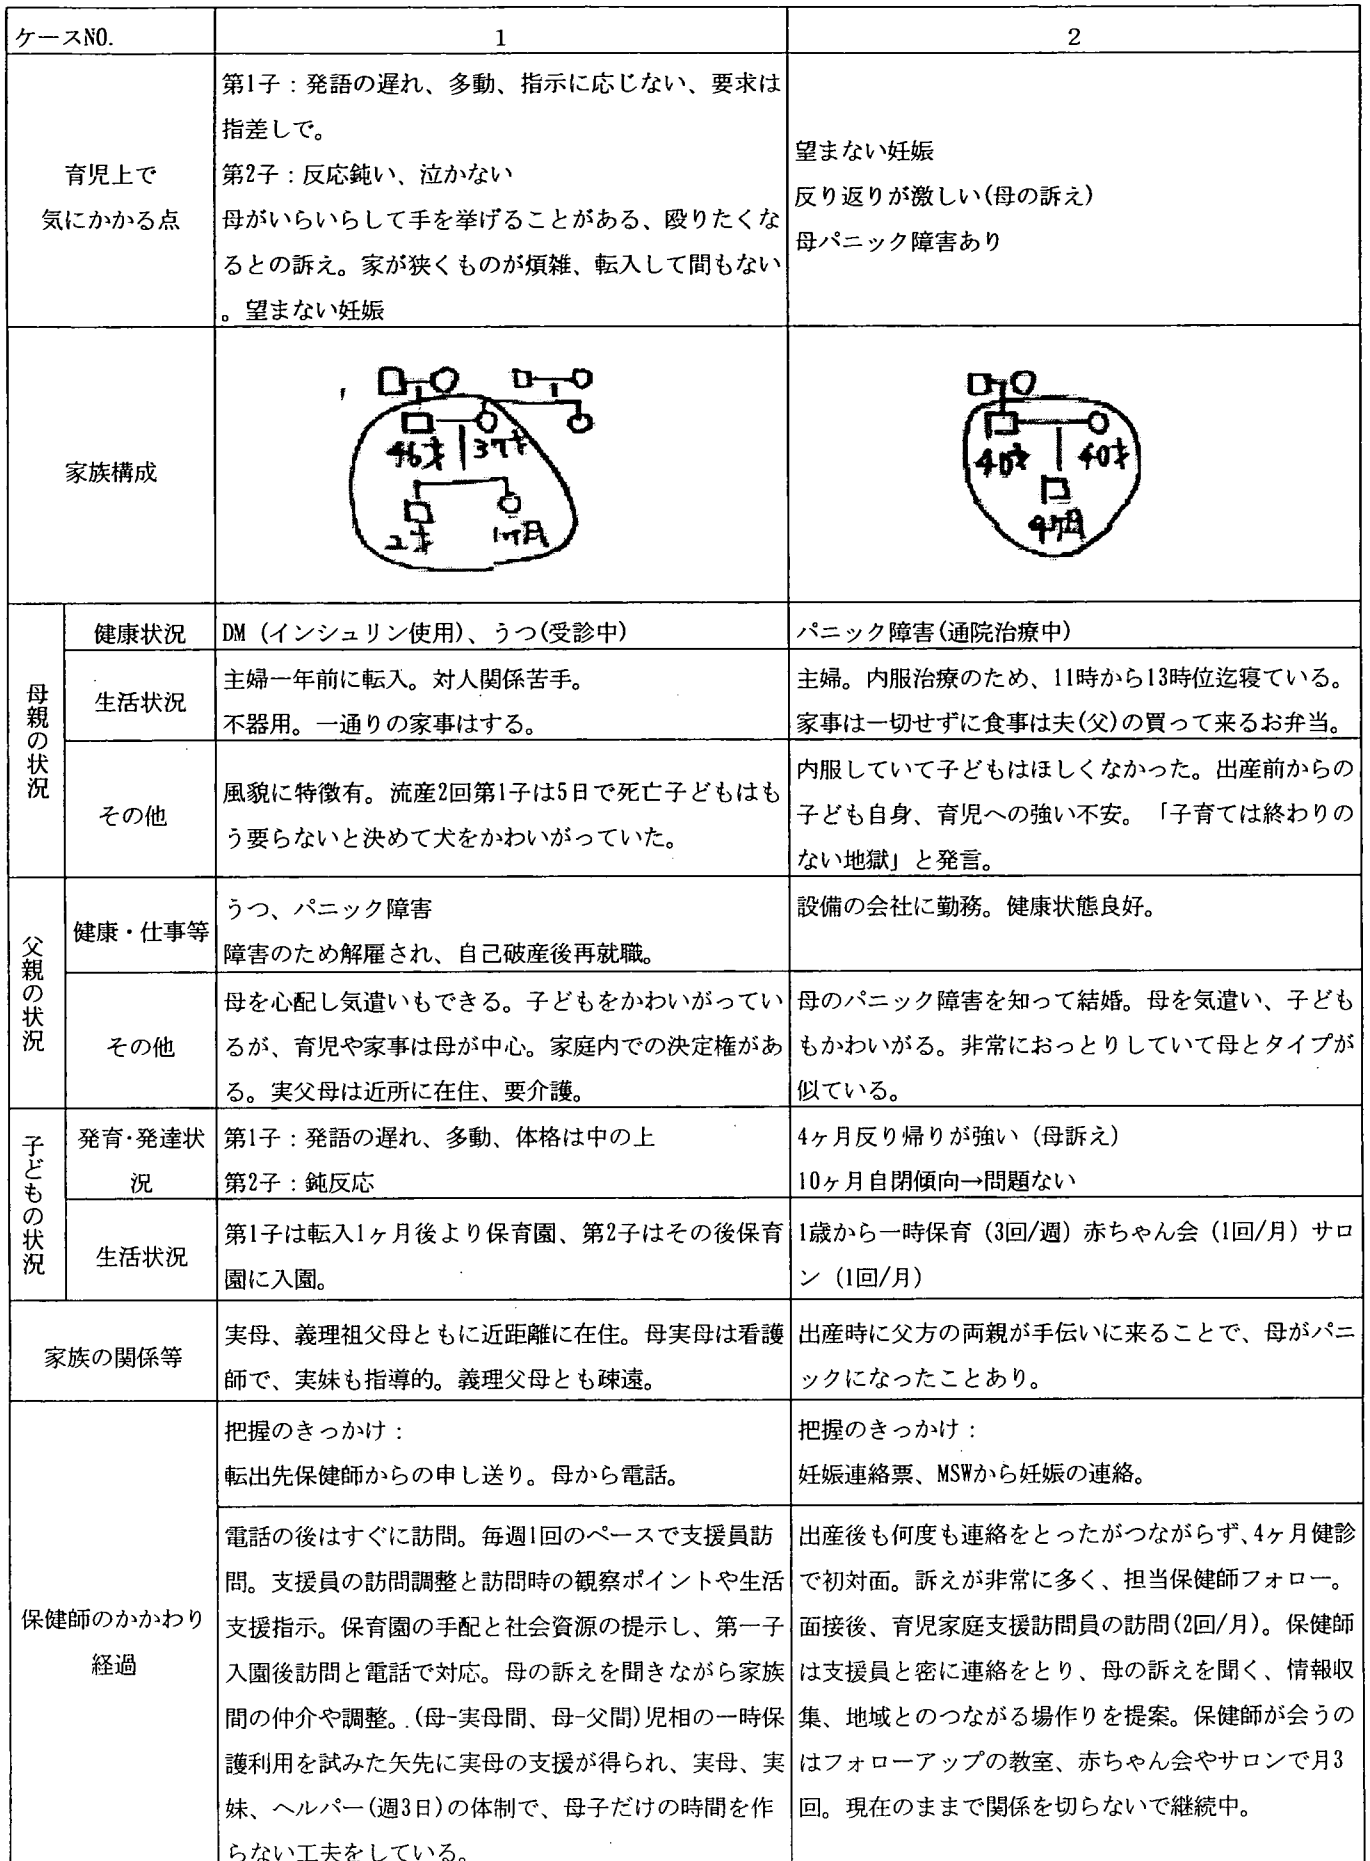 ケースNO.
1
2
育児上で
気にかかる点
第1子：発語の遅れ、多動、指示に応じない、要求は
指差しで。
第2子：反応鈍い、泣かない
母がいらいらして手を挙げることがある、殴りたくな
るとの訴え。家が狭くものが煩雑、転入して間もない
。望まない妊娠
望まない妊娠
反り返りが激しい(母の訴え)
母パニック障害あり
家族構成
46才
37才
2才
1ヶ月
40才
40才
4ヶ月
母親の状況
健康状況
DM（インシュリン使用）、うつ(受診中)
パニック障害(通院治療中)
生活状況
主婦一年前に転入。対人関係苦手。
不器用。一通りの家事はする。
主婦。内服治療のため、11時から13時位迄寝ている。
家事は一切せずに食事は夫(父)の買って来るお弁当。
その他
風貌に特徴有。流産2回第1子は5日で死亡子どもはも
う要らないと決めて犬をかわいがっていた。
内服していて子どもはほしくなかった。出産前からの
子ども自身、育児への強い不安。「子育ては終わりの
ない地獄」と発言。
父親の状況
健康・仕事等
うつ、パニック障害
障害のため解雇され、自己破産後再就職。
設備の会社に勤務。健康状態良好。
その他
母を心配し気遣いもできる。子どもをかわいがってい
るが、育児や家事は母が中心。家庭内での決定権があ
る。実父母は近所に在住、要介護。
母のパニック障害を知って結婚。母を気遣い、子ども
もかわいがる。非常におっとりしていて母とタイプが
似ている。
子どもの状況
発育・発達状
況
第1子：発語の遅れ、多動、体格は中の上
第2子：鈍反応
4ヶ月反り帰りが強い（母訴え）
10ヶ月自閉傾向→問題ない
生活状況
第1子は転入1ヶ月後より保育園、第2子はその後保育
園に入園。
1歳から一時保育（3回/週）赤ちゃん会（1回/月）サロ
ン（1回/月）
家族の関係等
実母、義理祖父母ともに近距離に在住。母実母は看護
師で、実妹も指導的。義理父母とも疎遠。
出産時に父方の両親が手伝いに来ることで、母がパニ
ックになったことあり。
保健師のかかわり
経過
把握のきっかけ：
転出先保健師からの申し送り。母から電話。
把握のきっかけ：
妊娠連絡票、MSWから妊娠の連絡。
電話の後はすぐに訪問。毎週1回のペースで支援員訪
問。支援員の訪問調整と訪問時の観察ポイントや生活
支援指示。保育園の手配と社会資源の提示し、第一子
入園後訪問と電話で対応。母の訴えを聞きながら家族
間の仲介や調整。(母-実母間、母-父間)児相の一時保
護利用を試みた矢先に実母の支援が得られ、実母、実
妹、ヘルパー(週3日)の体制で、母子だけの時間を作
らない工夫をしている。
出産後も何度も連絡をとったがつながらず、4ヶ月健診
で初対面。訴えが非常に多く、担当保健師フォロー。
面接後、育児家庭支援訪問員の訪問(2回/月)。保健師
は支援員と密に連絡をとり、母の訴えを聞く、情報収
集、地域とのつながる場作りを提案。保健師が会うの
はフォローアップの教室、赤ちゃん会やサロンで月3
回。現在のままで関係を切らないで継続中。